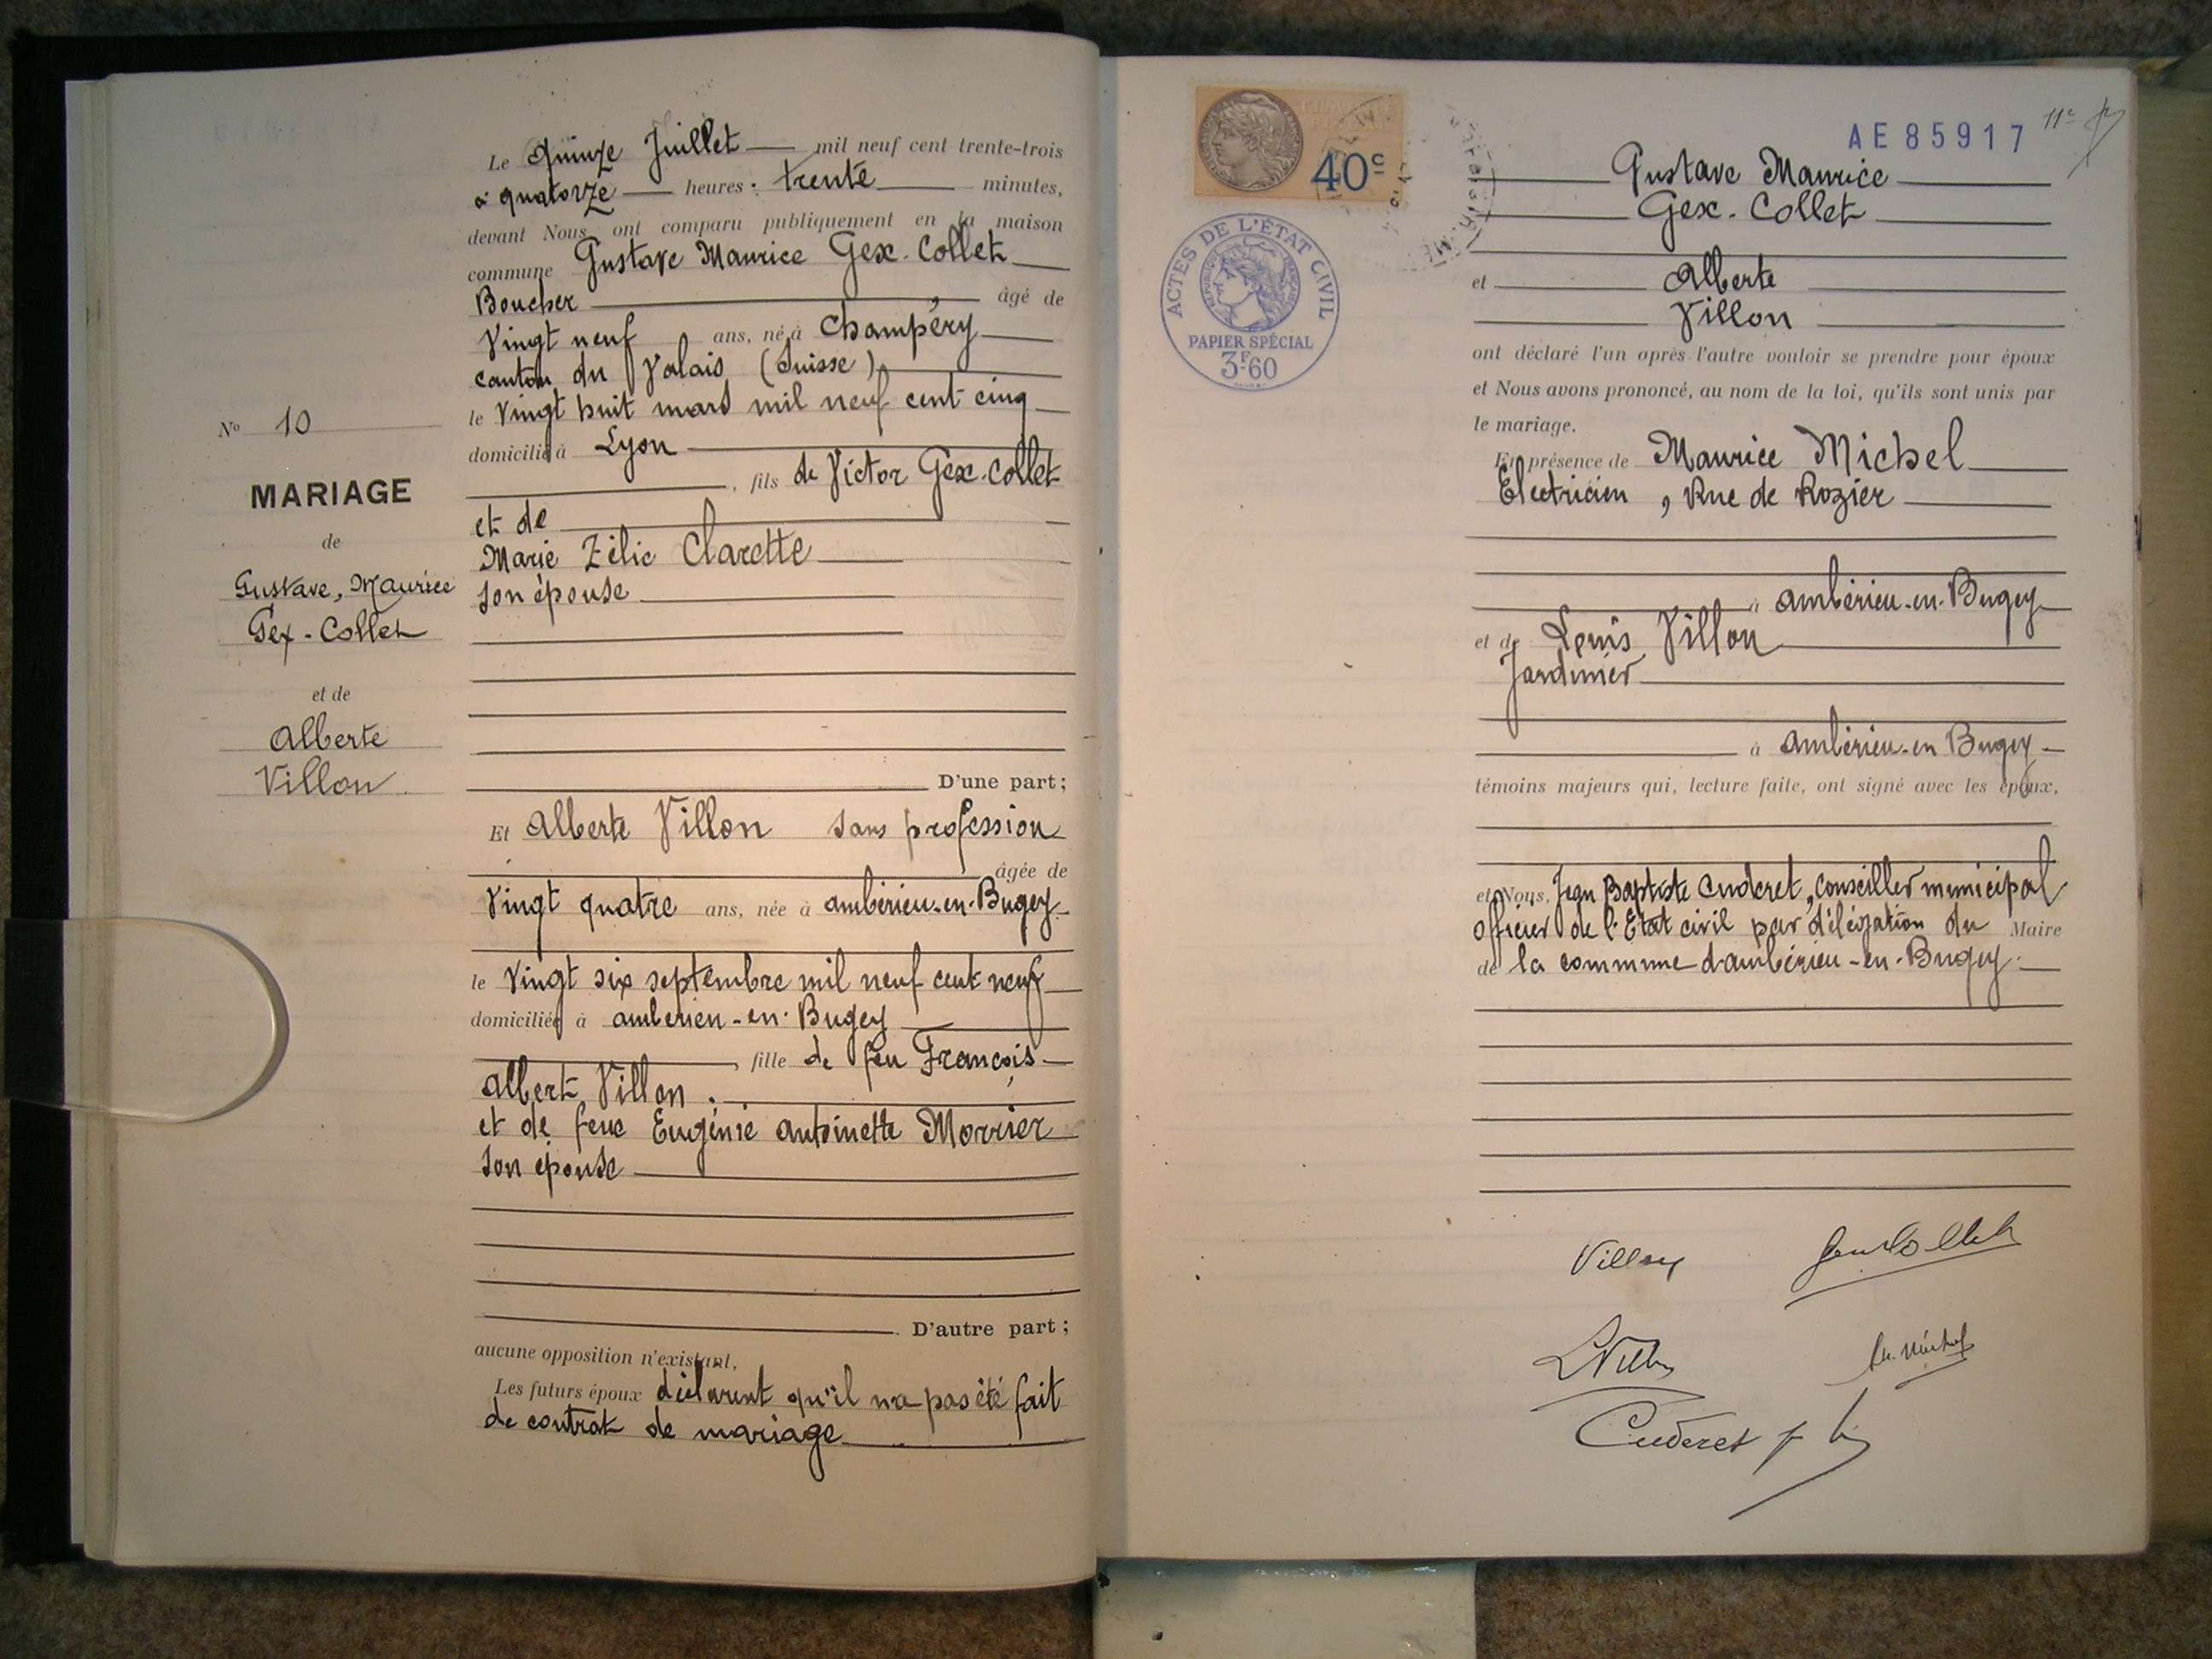 Le quinze Juillet mil neuf cent trente-trois
à quatorze heures trente minutes,
devant Nous ont comparu publiquement en la maison
commune Gustave Maurice Gex-Collet
Boucher âgé de
Vingt neuf ans, né à Champéry
canton du Valais (Suisse)
le Vingt huit mars mil neuf cent cinq
domicilié à Lyon
, fils de Victor Gex-Collet
et de
Marie Zélie Clarette
son épouse
No 10
MARIAGE
de
Gustave, Maurice
Gex-Collet
et de
Alberte
Villon
D'une part;
Et Alberte Villon sans profession
âgée de
Vingt quatre ans, née à ambérieu-en-Bugey
le Vingt six septembre mil neuf cent neuf
domiciliée à ambérieu-en-Bugey
, fille de feu François
Albert Villon.
et de feue Eugénie Antoinette Morrier
son épouse
D'autre part;
aucune opposition n'existant,
Les futurs époux déclarent qu'il n'a pas été fait
de contrat de mariage
40c
ACTES DE L'ÉTAT CIVIL
RÉPUBLIQUE FRANÇAISE
PAPIER SPÉCIAL
3F60
AE 85917
Gustave Maurice
Gex-Collet
et Alberte
Villon
ont déclaré l'un après l'autre vouloir se prendre pour époux
et Nous avons prononcé, au nom de la loi, qu'ils sont unis par
le mariage.
En présence de Maurice Michel
Electricien, Rue de Rozier
à ambérieu-en-Bugey
et de Louis Villon
Jardinier
à ambérieu-en Bugey
témoins majeurs qui, lecture faite, ont signé avec les époux,
et Nous, Jean Baptiste Cuderet, conseiller municipal
Officier de l'Etat civil par délégation du Maire
de la commune d'ambérieu-en-Bugey.
Villon
GexCollet
LVillon
M. Michel
Cuderet